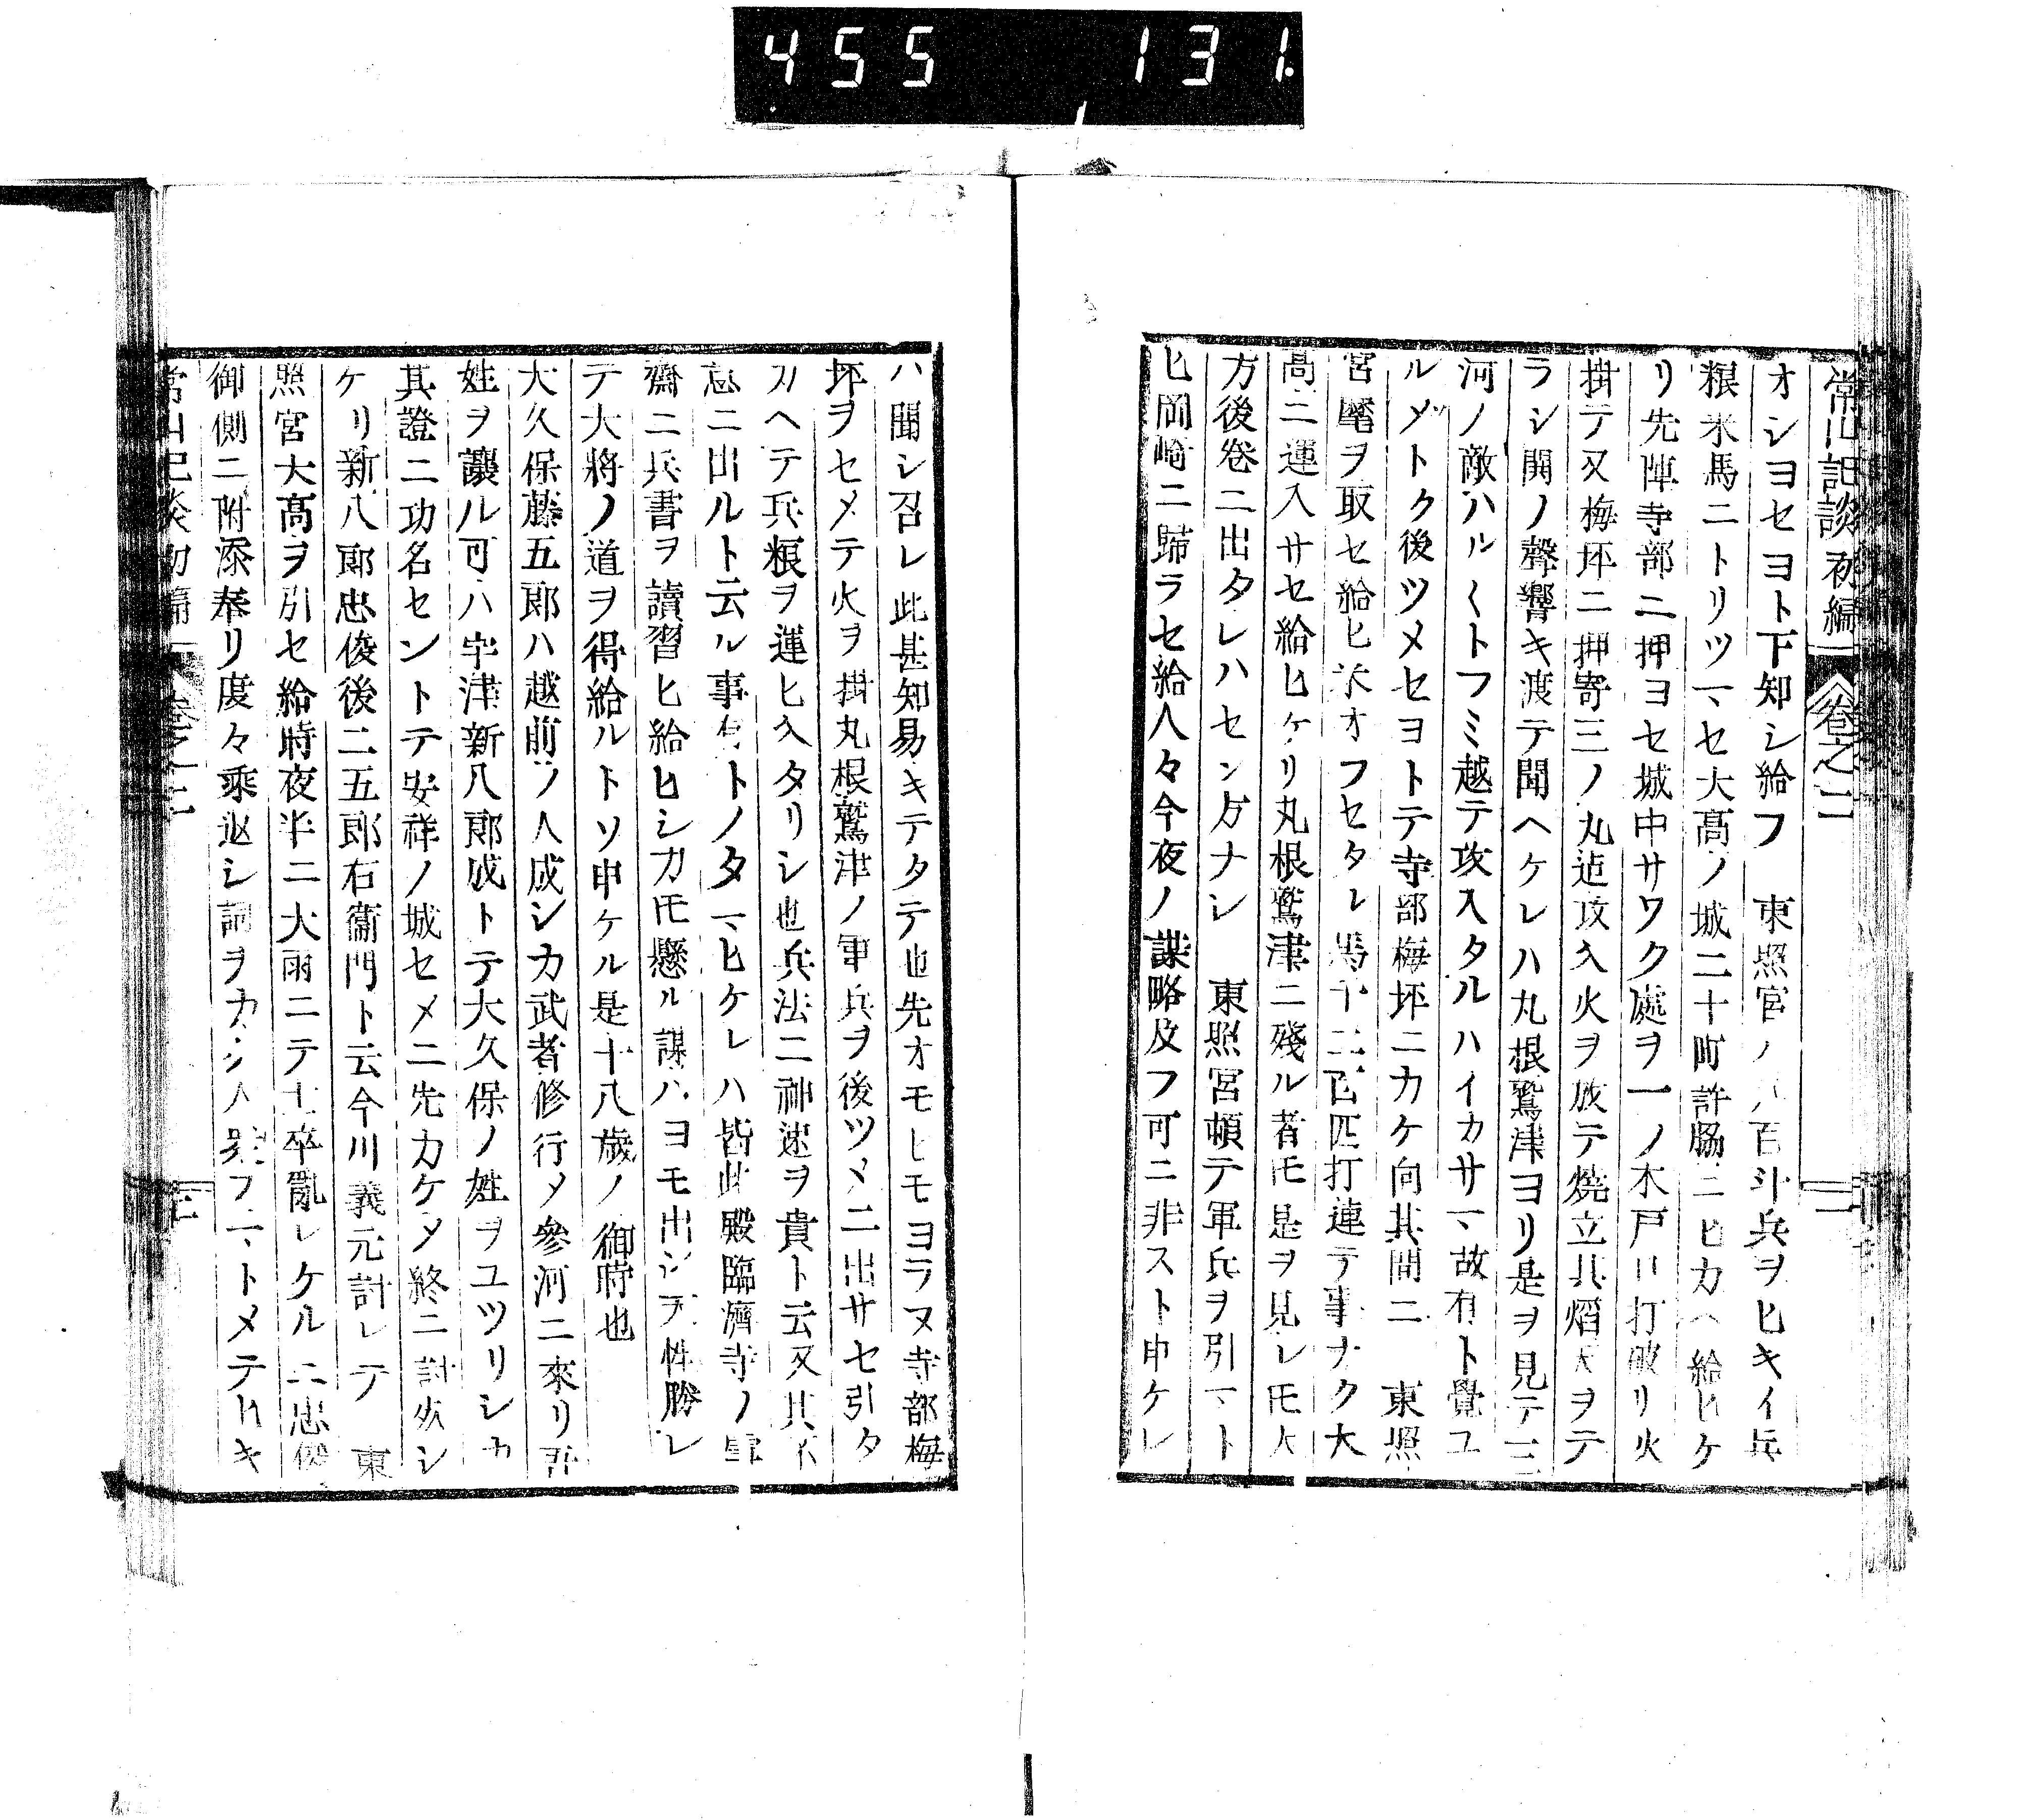 455 131
常山記談初編 卷之二 二
オシヨセヨト下知シ給フ　東照宮ノ八百斗兵ヲヒキイ兵
粮米馬ニトリツマセ大髙ノ城二十町許脇ニヒカヘ給ヒケ
リ先陣寺部ニ押ヨセ城中サワク處ヲ一ノ木戸口打破リ火
掛テ又梅坪ニ押寄三ノ丸迠攻入火ヲ放テ燒立其熖天ヲテ
ラシ鬨ノ聲響キ渡テ聞ヘケレハ丸根鷲津ヨリ是ヲ見テ三
河ノ敵ハル〱トフミ越テ攻入タルハイカサマ故有ト覺ユ
ルゾトク後ツメセヨトテ寺部梅坪ニカケ向其間ニ　東照
宮麾ヲ取セ給ヒ米オフセタル馬千二百匹打連テ事ナク大
髙ニ運入サセ給ヒケリ丸根鷲津ニ殘ル者𪜈是ヲ見レ𪜈大
方後卷ニ出タレハセン方ナシ　東照宮頓テ軍兵ヲ引マト
ヒ岡崎ニ歸ラセ給人々今夜ノ謀略及フ可ニ非スト申ケレ
ハ聞シ召レ此甚知易キテタテ也先オモヒモヨラヌ寺部梅
坪ヲセメテ火ヲ掛丸根鷲津ノ軍兵ヲ後ツメニ出サセ引タ
カヘテ兵粮ヲ運ヒ入タリシ也兵法ニ神速ヲ貴ト云又其不
意ニ出ルト云ル事有トノタマヒケレハ皆此殿臨濟寺ノ雪
齋ニ兵書ヲ讀習ヒ給ヒシカ𪜈懸ル謀ハヨモ出シテ性勝レ
テ大將ノ道ヲ得給ルトソ申ケル是十八歳ノ御時也
大久保藤五郎ハ越前ノ人成シカ武者修行メ參河ニ來リ吾
姓ヲ讓ル可ハ宇津新八郎成トテ大久保ノ姓ヲユツリシカ
其證ニ功名セントテ安祥ノ城セメニ先カケメ終ニ討死シ
ケリ新八郎忠俊後ニ五郎右衞門ト云今川義元討レテ　東
照宮大髙ヲ引セ給時夜半ニ大雨ニテ士卒亂レケルニ忠俊
御側ニ附添奉リ度々乘返シ詞ヲカケ人衆ヲマトメテヒキ
常山記談初編 卷之二 三